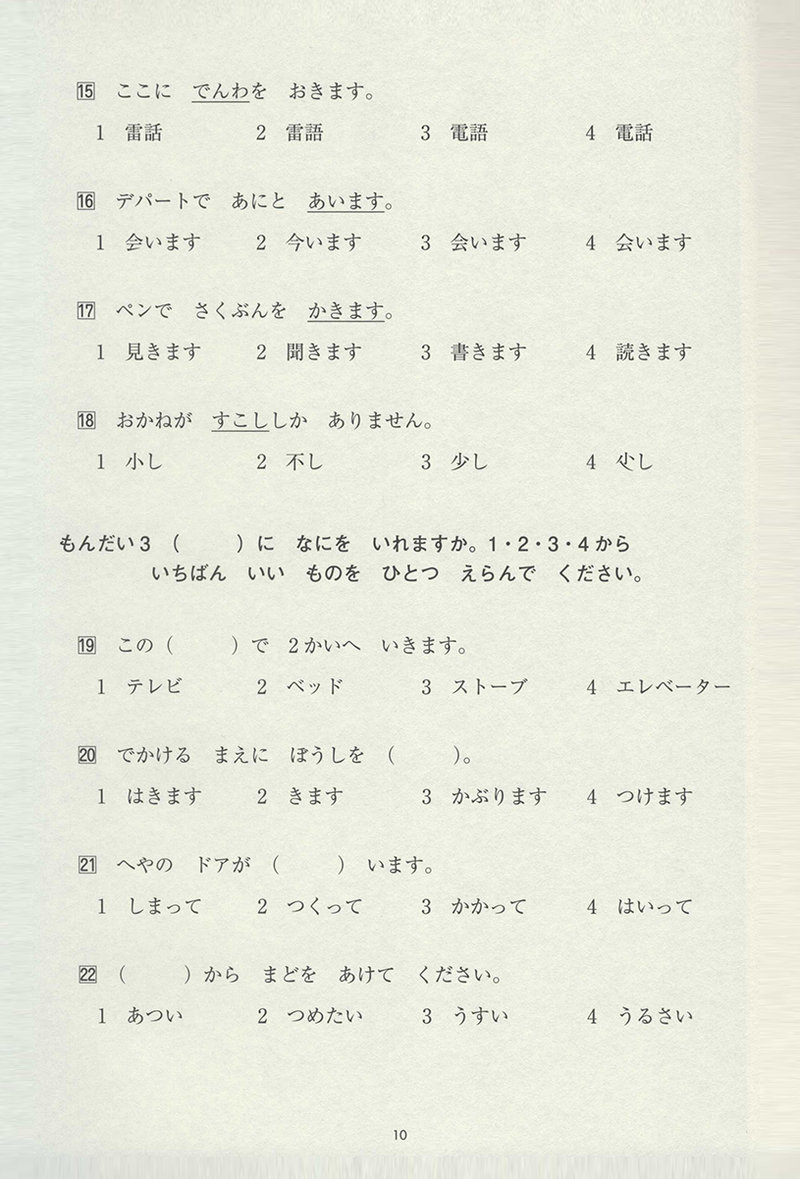 15 ここに でんわを おきます。
1 雷話 2 雷語 3 電語 4 電話
16 デパートで あにと あいます。
1 会います 2 今います 3 会います 4 会います
17 ペンで さくぶんを かきます。
1 見きます 2 聞きます 3 書きます 4 読きます
18 おかねが すこししか ありません。
1 小し 2 不し 3 少し 4 し
もんだい3 ( )に なにを いれますか。1・2・3・4から
いちばん いい ものを ひとつ えらんで ください。
19 この( )で 2かいへ いきます。
1 テレビ 2 ベッド 3 ストーブ 4 エレベーター
20 でかける まえに ぼうしを ( )。
1 はきます 2 きます 3 かぶります 4 つけます
21 へやの ドアが ( ) います。
1 しまって 2 つくって 3 かかって 4 はいって
22 ( )から まどを あけて ください。
1 あつい 2 つめたい 3 うすい 4 うるさい
10